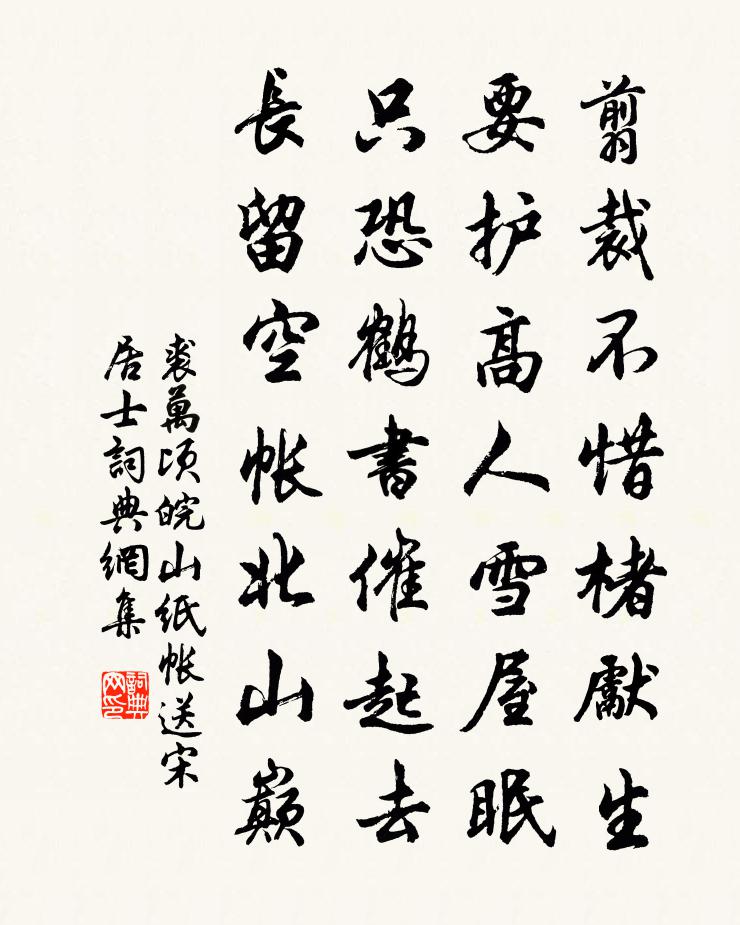 翦裁不惜楮獻生
要护高人雪屋眠
只恐鶴書催起去
長留空帳北山巔
裘萬頃皖山紙帳送宋
居士詞典網集
詞典
网印